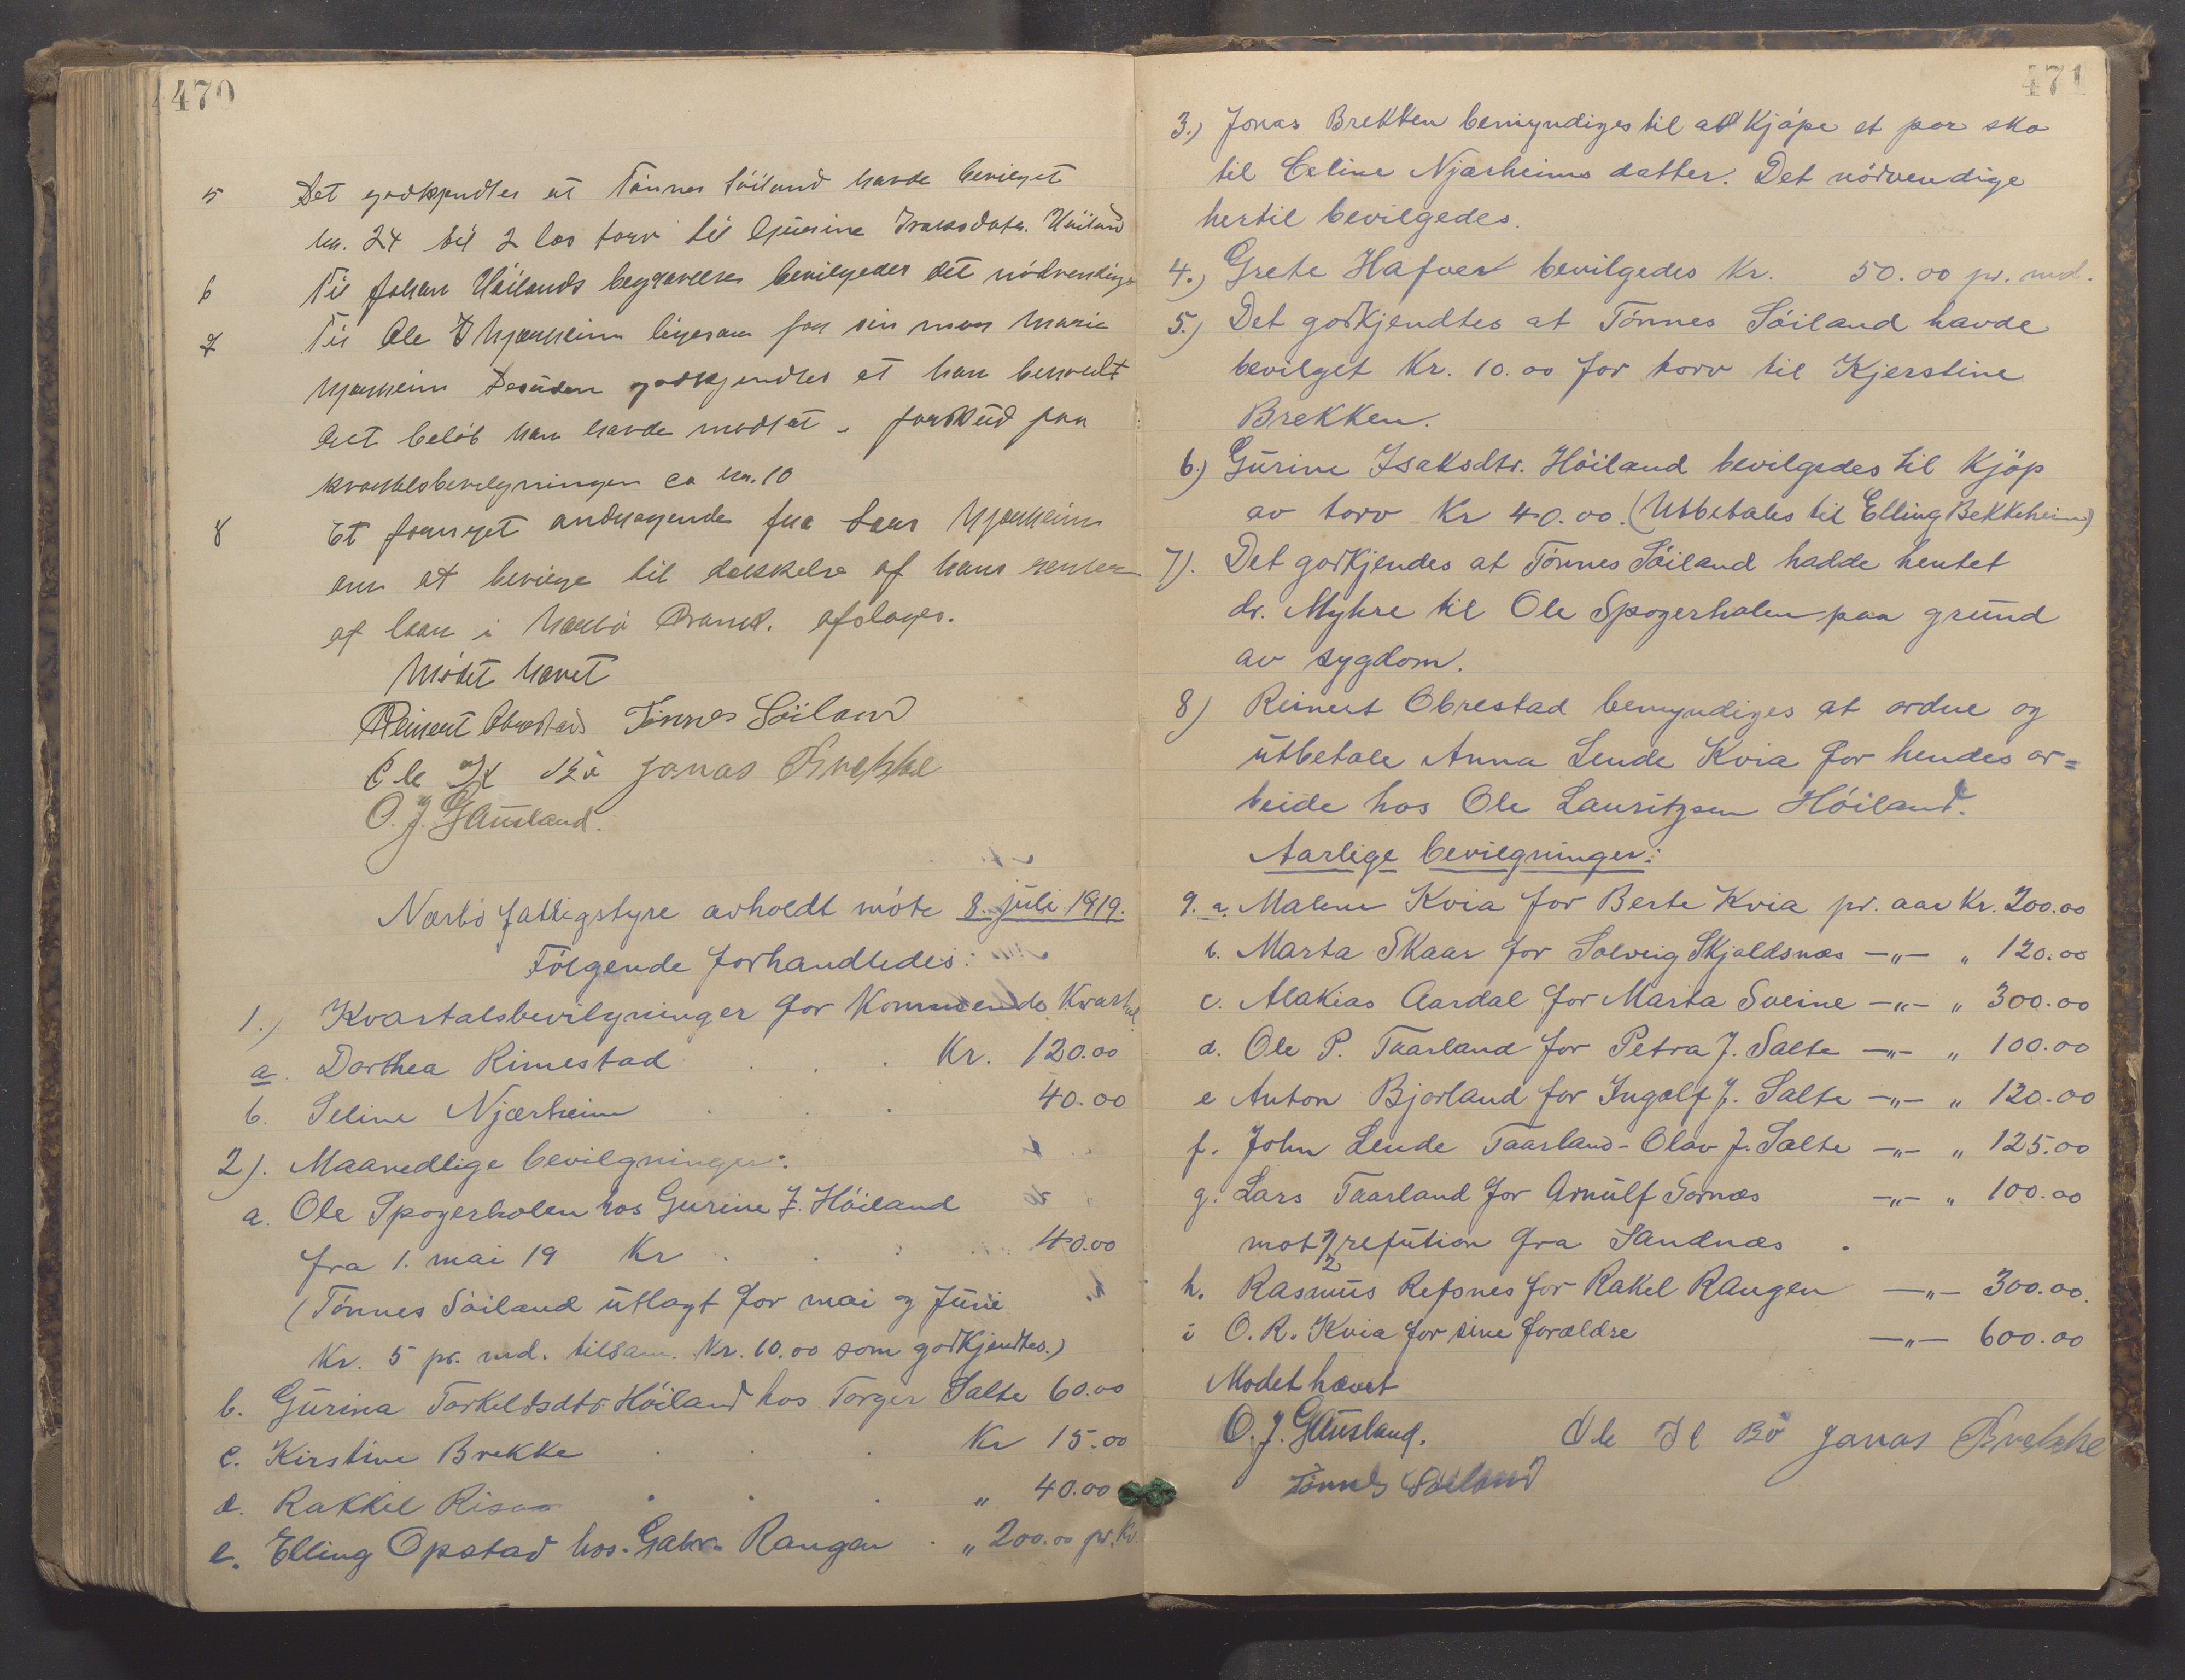 470
5 Det godkjendtes at Tönnes Söiland havde bevilget
kr. 24 til 2 las torv til Gurine Isaksdater Höiland
6 Til Johan Höilands begravelse bevilgedes det nödvendige
7 Til Ole Njærheim ligesaa for sin mor Marie
Njærheim Desuden godkjendtes at han beholdt
det belöb han havde modtat forskud paa
kvartalsbevilgningen ca kr. 10
8 Et fornyet andragende fra Lars Njærheim
om at bevilge til dækkelse af hans renter
af laan i Nærbö Brands. afslages.
Mödet hævet
Reinert Obrestad Tönnes Söiland
Ole Il Bö Jonas Brekke
O. J. Gausland.
Nærbö fattigstyre avholdt möte 8. juli 1919.
Fölgende forhandledes:
1.) Kvartalsbevilgninger for kommende Kvartal.
a. Dorthea Rimestad . . . Kr. 120.00
b. Seline Njærheim . . . 40.00
2). Maanedlige bevilgninger:
a. Ole Spogerholen hos Gurine J. Höiland
fra 1. mai 19 Kr . . . 40.00
(Tönnes Söiland utlagt for mai og Juni
Kr. 5 pr. md. tilsam. Kr. 10.00 som godkjendtes.)
b. Gurina Torkeldsdtr Höiland hos Torger Salte 60.00
c. Kirstine Brekke . . . Kr 15.00
d. Rakkel Risa . . . " 40.00
e. Elling Opstad hos Gabr. Raugan . " 200.00 pr. Kv.
471
3.) Jonas Brekken bemyndiges til at Kjöpe et par sko
til Celine Njærheims datter. Det nödvendige
hertil bevilgedes.
4.) Grete Hafver bevilgedes Kr. 50.00 pr. md.
5.) Det godkjendtes at Tönnes Söiland havde
bevilget Kr. 10.00 for torv til Kjerstine
Brekken.
6.) Gurine Isaksdtr. Höiland bevilgedes til Kjöp
av torv Kr 40.00. (Utbetales til Elling Bekkeheim)
7). Det godkjendes at Tönnes Söiland hadde hentet
dr. Myhre til Ole Spogerholen paa grund
av sygdom.
8) Reinert Obrestad bemyndiges at ordne og
utbetale Anna Lende Kvia for hendes ar=
beide hos Ole Lauritzsen Höiland.
Aarlige bevilgninger:
9. a. Malene Kvia for Berte Kvia pr. aar Kr. 200.00
b. Marta Skaar for Solveig Skjoldsnæs —„— „ 120.00
c. Alakias Aardal for Marta Sveine —„— „ 300.00
d. Ole P. Taarland for Petra J. Salte —„— „ 100.00
e Anton Bjorland for Ingolf J. Salte —„— „ 120.00
f. John Lende Taarland - Olav J. Salte —„— „ 125.00
g. Lars Taarland for Arnulf Tornæs —„— „ 100.00
mot 1/2 refution fra Sandnæs .
h. Rasmus Refsnes for Rakel Raugen —„— 300.00.
i O. R. Kvia for sine forældre —„— 600.00
Mødet hævet
O. J. Gausland. Ole Il Bö Jonas Brekke
Tönnes Söiland